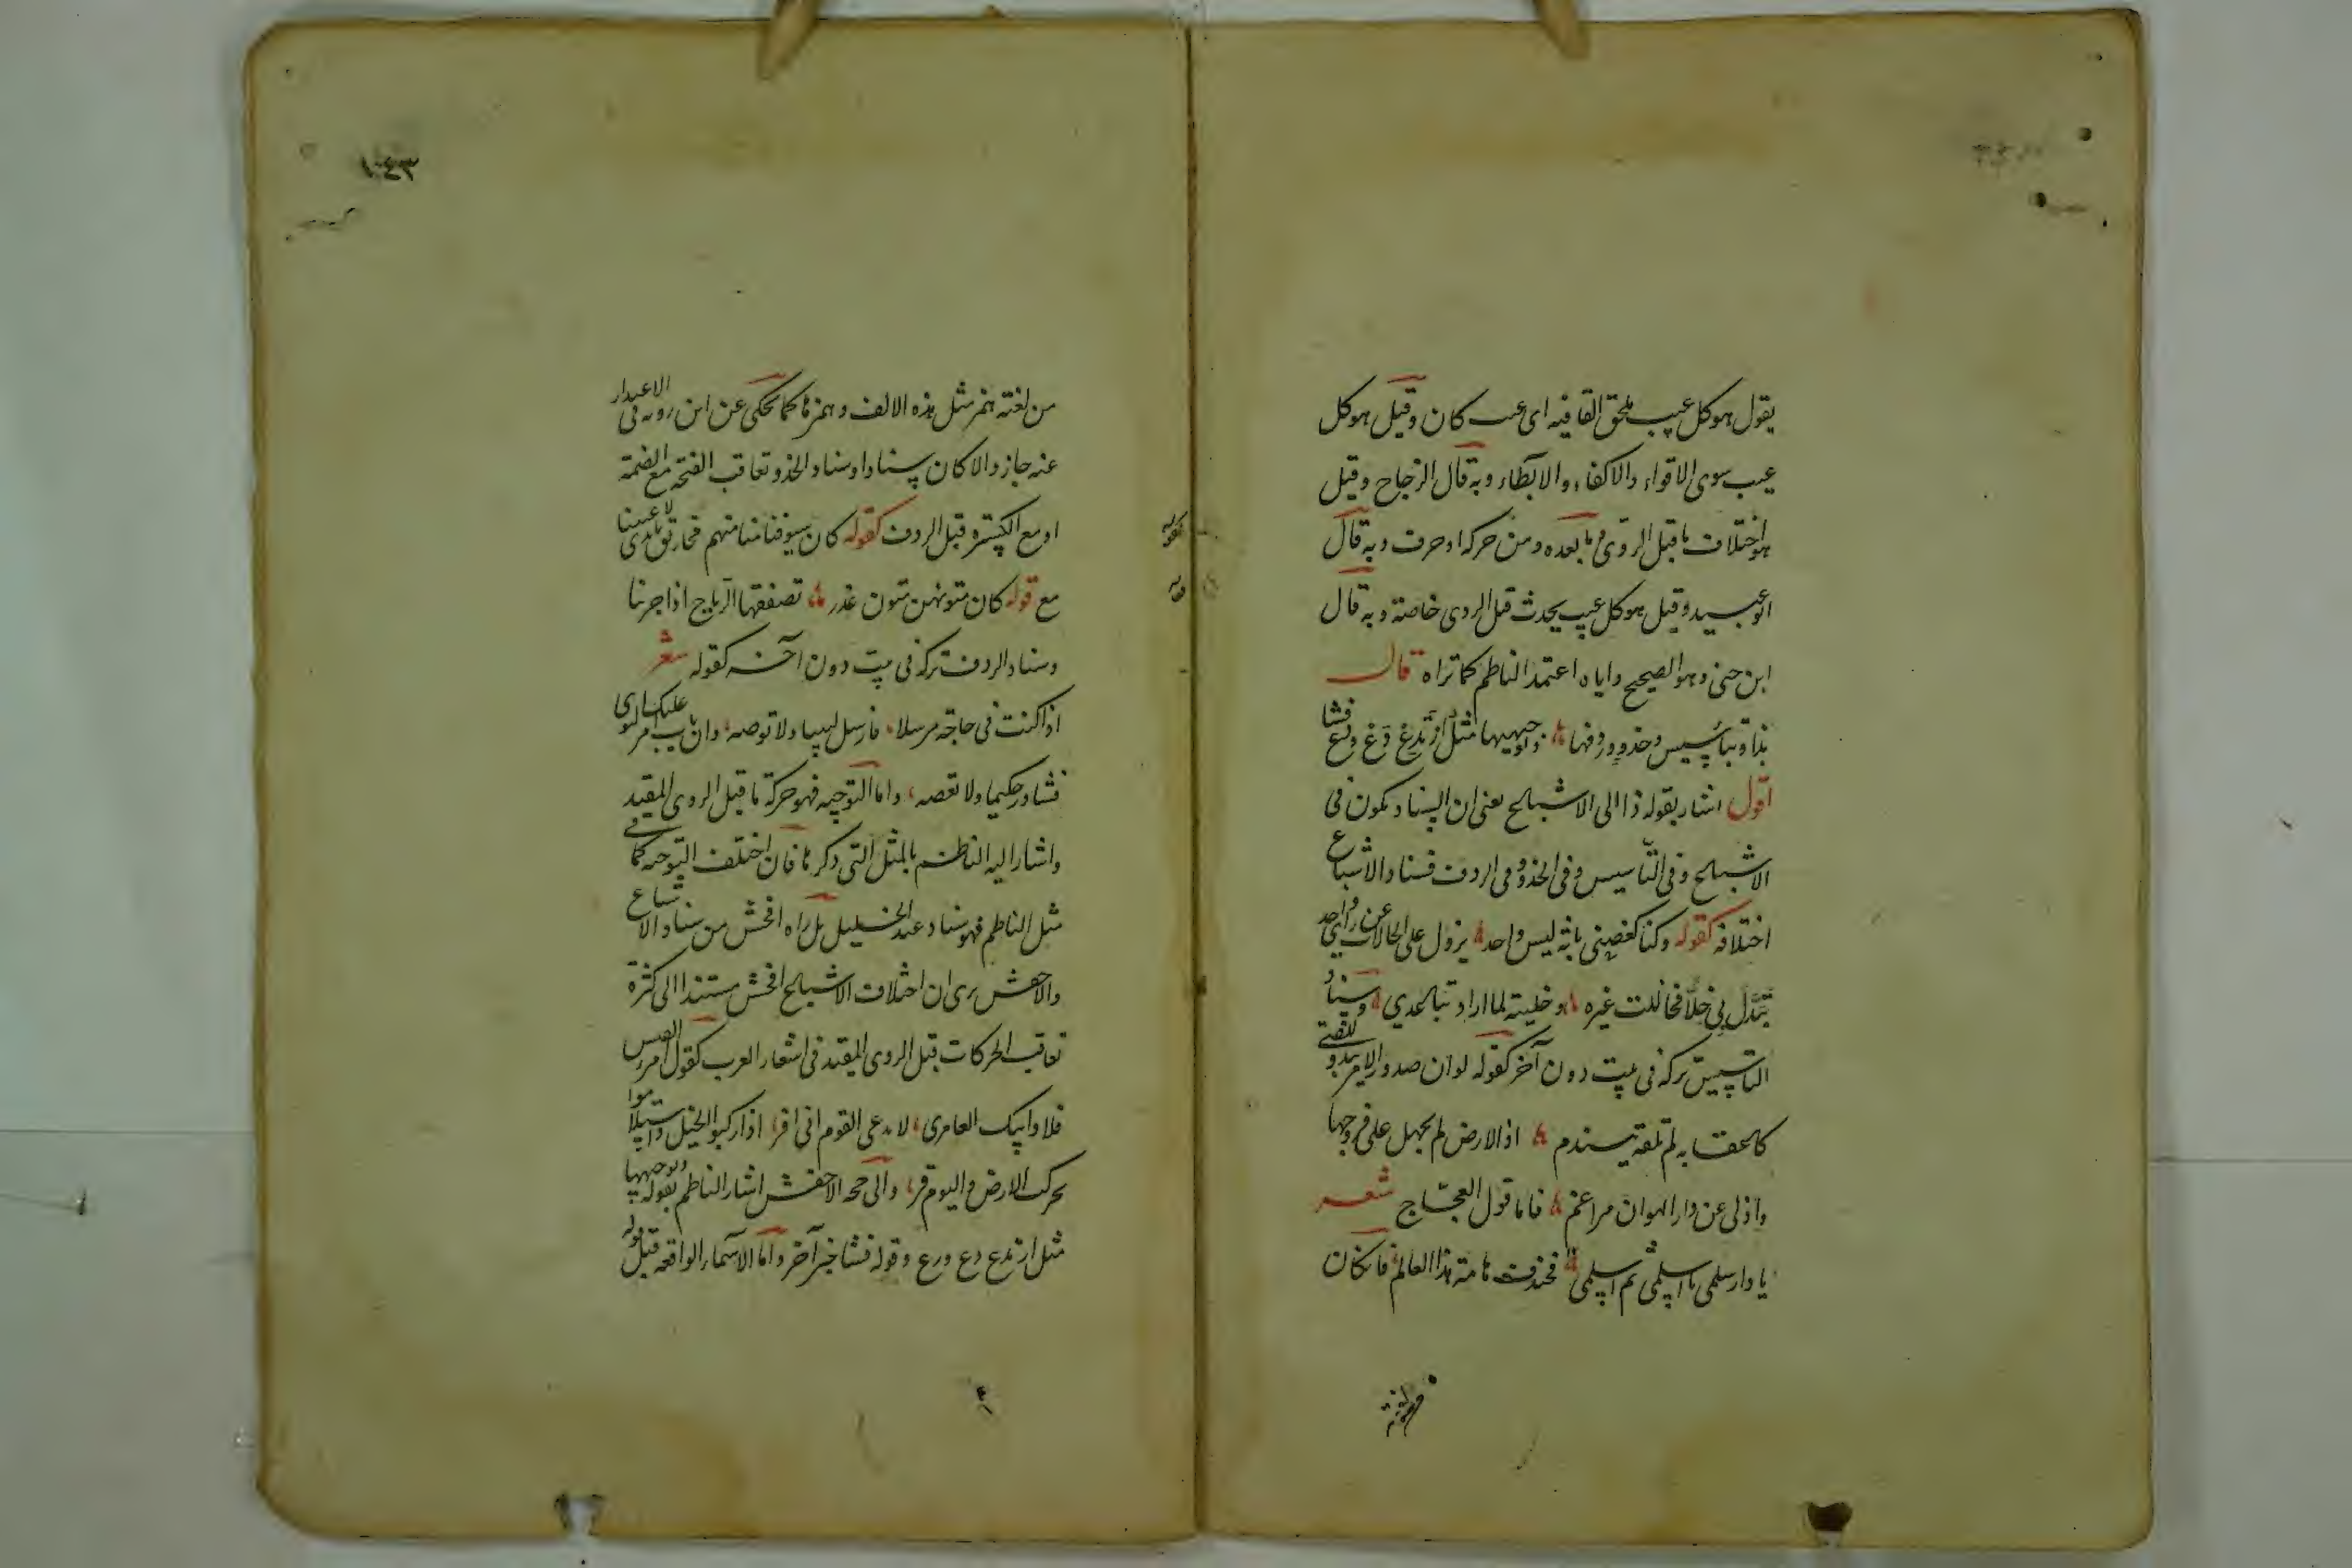 يقول هو كل عيب يلحق القافيه اى عيب كان وقيل هو كل
عيب سوى الاقواء والاكفاء والايطاء وبه قال الزجاج وقيل
هو اختلاف ما قبل الروى وما بعده ومن حركة او حرف وبه قال
ابو عبيد وقيل هو كل عيب يحدث قبل الروى خاصة وبه قال
ابن جنى وهو الصحيح واياه اعتمد الناظم كما تراه قال
بذا وبتأسيس وحذو وردفها وتوجيهها مثل ارتدع دع ورع فشا
اقول اشار بقوله ذا الى الاشباع يعنى ان السناد يكون فى
الاشباع وفى التأسيس وفى الحذو وفى الردف فسناد الاشباع
اختلافه كقوله وكنا كغصنى بانة ليس واحد يزول على الحالات عن راى واحد
تبدل بى خلا فخاللت غيره وخليته لما اراد تباعدي وسناد
التأسيس تركه فى بيت دون آخر كقوله لو ان صدور الامر يبدو للفتى
كاعقابه لم تلقه يتندم اذ الارض لم تجهل على فروجها
واذ لى عن دار الهوان مراغم فاما قول العجاج شعر
يا دار سلمى يا اسلمى ثم اسلمى فخندف هامة هذا العالم فان كان
من لغته همز مثل هذه الالف وهمزها كما يحكى عن ابن روبه فى الاعتذار
عنه جاز والا كان سنادا وسناد الحذو تعاقب الفتحة مع الضمة
او مع الكسرة قبل الردف كقوله كان سيوفنا منا ومنهم مخاريق بايدى لاعبينا
مع قوله كان متونهن متون غدر تصفقها الرياح اذا جرينا
وسناد الردف تركه فى بيت دون آخر كقوله شعر
اذا كنت فى حاجة مرسلا فارسل لبيبا ولا توصه وان باب امر عليك التوى
فشاور حكيما ولا تعصه واما التوجيه فهو حركة ما قبل الروى المقيد
واشار اليه الناظم بالمثل التى ذكرها فان اختلف التوجيه كما فى
مثل الناظم فهو سناد عند الخليل بل راه افحش من سناد الاشباع
والاخفش يرى ان اختلاف الاشباع افحش مستندا الى كثرة
تعاقب الحركات قبل الروى المقيد فى اشعار العرب كقول امرء القيس
فلا وابيك العامرى لا يدعى القوم انى افر اذا ركبوا الخيل واستلاموا
تحركت الارض واليوم قر والى حجة الاخفش اشار الناظم بقوله وتوجيهها
مثل ارتدع دع ورع وقوله فشا خبر آخر واما الاسماء الواقعه قبل قوله